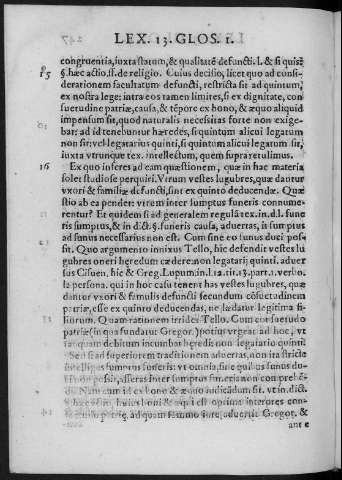 LEX. 13. GLOS. 1.
congruentia, iuxta statum, & qualitatē defuncti. l. & si quis?
15 §. hæc actio, ff. de religio. Cuius decisio, licet quo ad consi-
derationem facultatum defuncti, restricta sit ad quintum,
ex nostra lege: intra eos tamen limites, si ex dignitate, con
suetudine patriæ, causa, & tēpore ex bono, & æquo aliquid
impensum sit, quod naturalis necessitas forte non exige-
bat; ad id tenebuntur hæredes, si quintum alicui legatum
non sit: vel legatarius quinti, si quintum alicui legatum sit,
iuxta vtrunque tex. intellectum, quem supra retulimus.
16 Ex quo inferes ad eam quæstionem, quæ in hac materia
solet studiose perquiri. Vtrum vestes lugubres, quæ dantur
vxori & familiæ defuncti, sint ex quinto deducendæ. Quæ
stio ab ea pendet: vtrem inter sumptus funeris connume-
rentur? Et quidem si ad generalem regulā tex. in. d. l. fune
ris sumptus, & in dict. §. funeris causa, aduertas, is sumptus
ad funus necessarius non est. Cum sine eo funus duci pos
sit. Quo argumento innixus Tello, hic defendit vestes lu
gubres oneri hæredum cædere: non legatarij quinti. aduer
sus Cifuen, hic & Greg. Lupum in l. 12. tit. 13. part. 1. verbo.
la persona. qui in hoc casu tenent has vestes lugubres, quæ
dantur vxori & famulis defuncti secundum cōsuetudinem
patriæ, esse ex quinro deducendas, ne lædatur legitima fi-
liorum. Quam rationem irridet Tello. Cum consuetudo
patriæ (in qua fundatur Gregor.) potius vrgeat ad hoc, vt
tar quam debitum incumbat hæredi: non legatario quinti.
Sed si ad superiorem traditionem aduertas, non ita stricte
intelliges sumptus funeris: vt omnia, sine quibus funus du-
ci non possit, asseras inter sumptus funeris non comprehē-
di. Nam cum id ex bono & æquo indicādum sit. vt in dict.
§. hæc actio, huius boni & æqui est optima interpres con-
suetudo patriæ, ad quam summo iure, aduertit Gregor, &
ant e